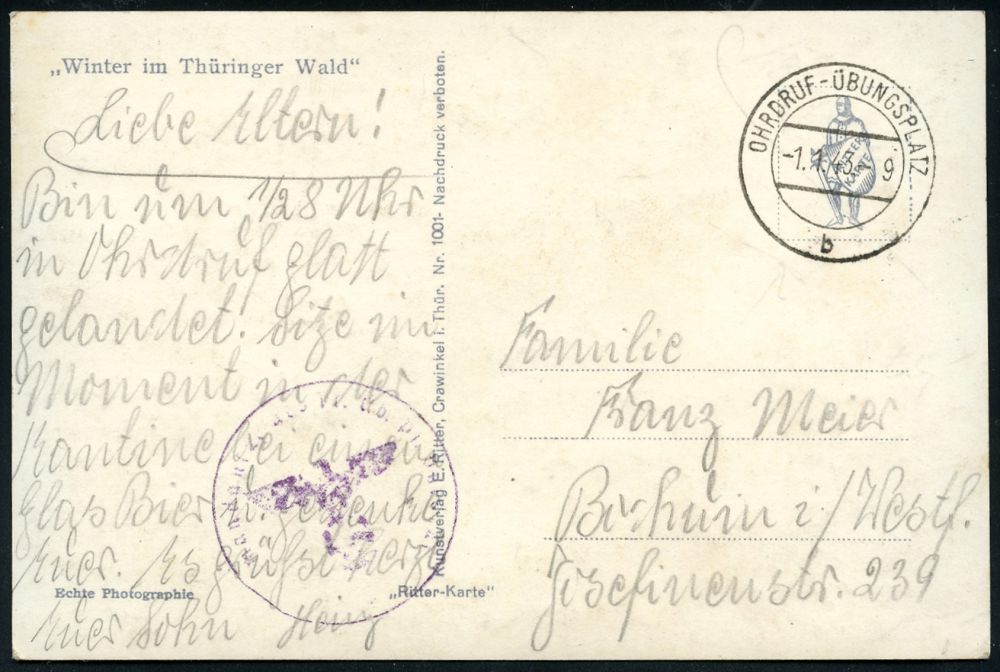 „Winter im Thüringer Wald“
Liebe Eltern!
Bin um 1/28 Uhr
in Ohrdruf glatt
gelandet! Sitze im
Moment in der
Kantine bei einem
Glas Bier u. gedenke
Euer. Es grüßt herzl.
Euer Sohn Heinz
Echte Photographie
„Ritter-Karte“
Kunstverlag E. Ritter, Crawinkel i. Thür. Nr. 1001- Nachdruck verboten.
OHRDRUF-ÜBUNGSPLATZ
b
RITTER
KARTE
Familie
Franz Meier
Bochum i/Westf.
Josefinenstr. 239